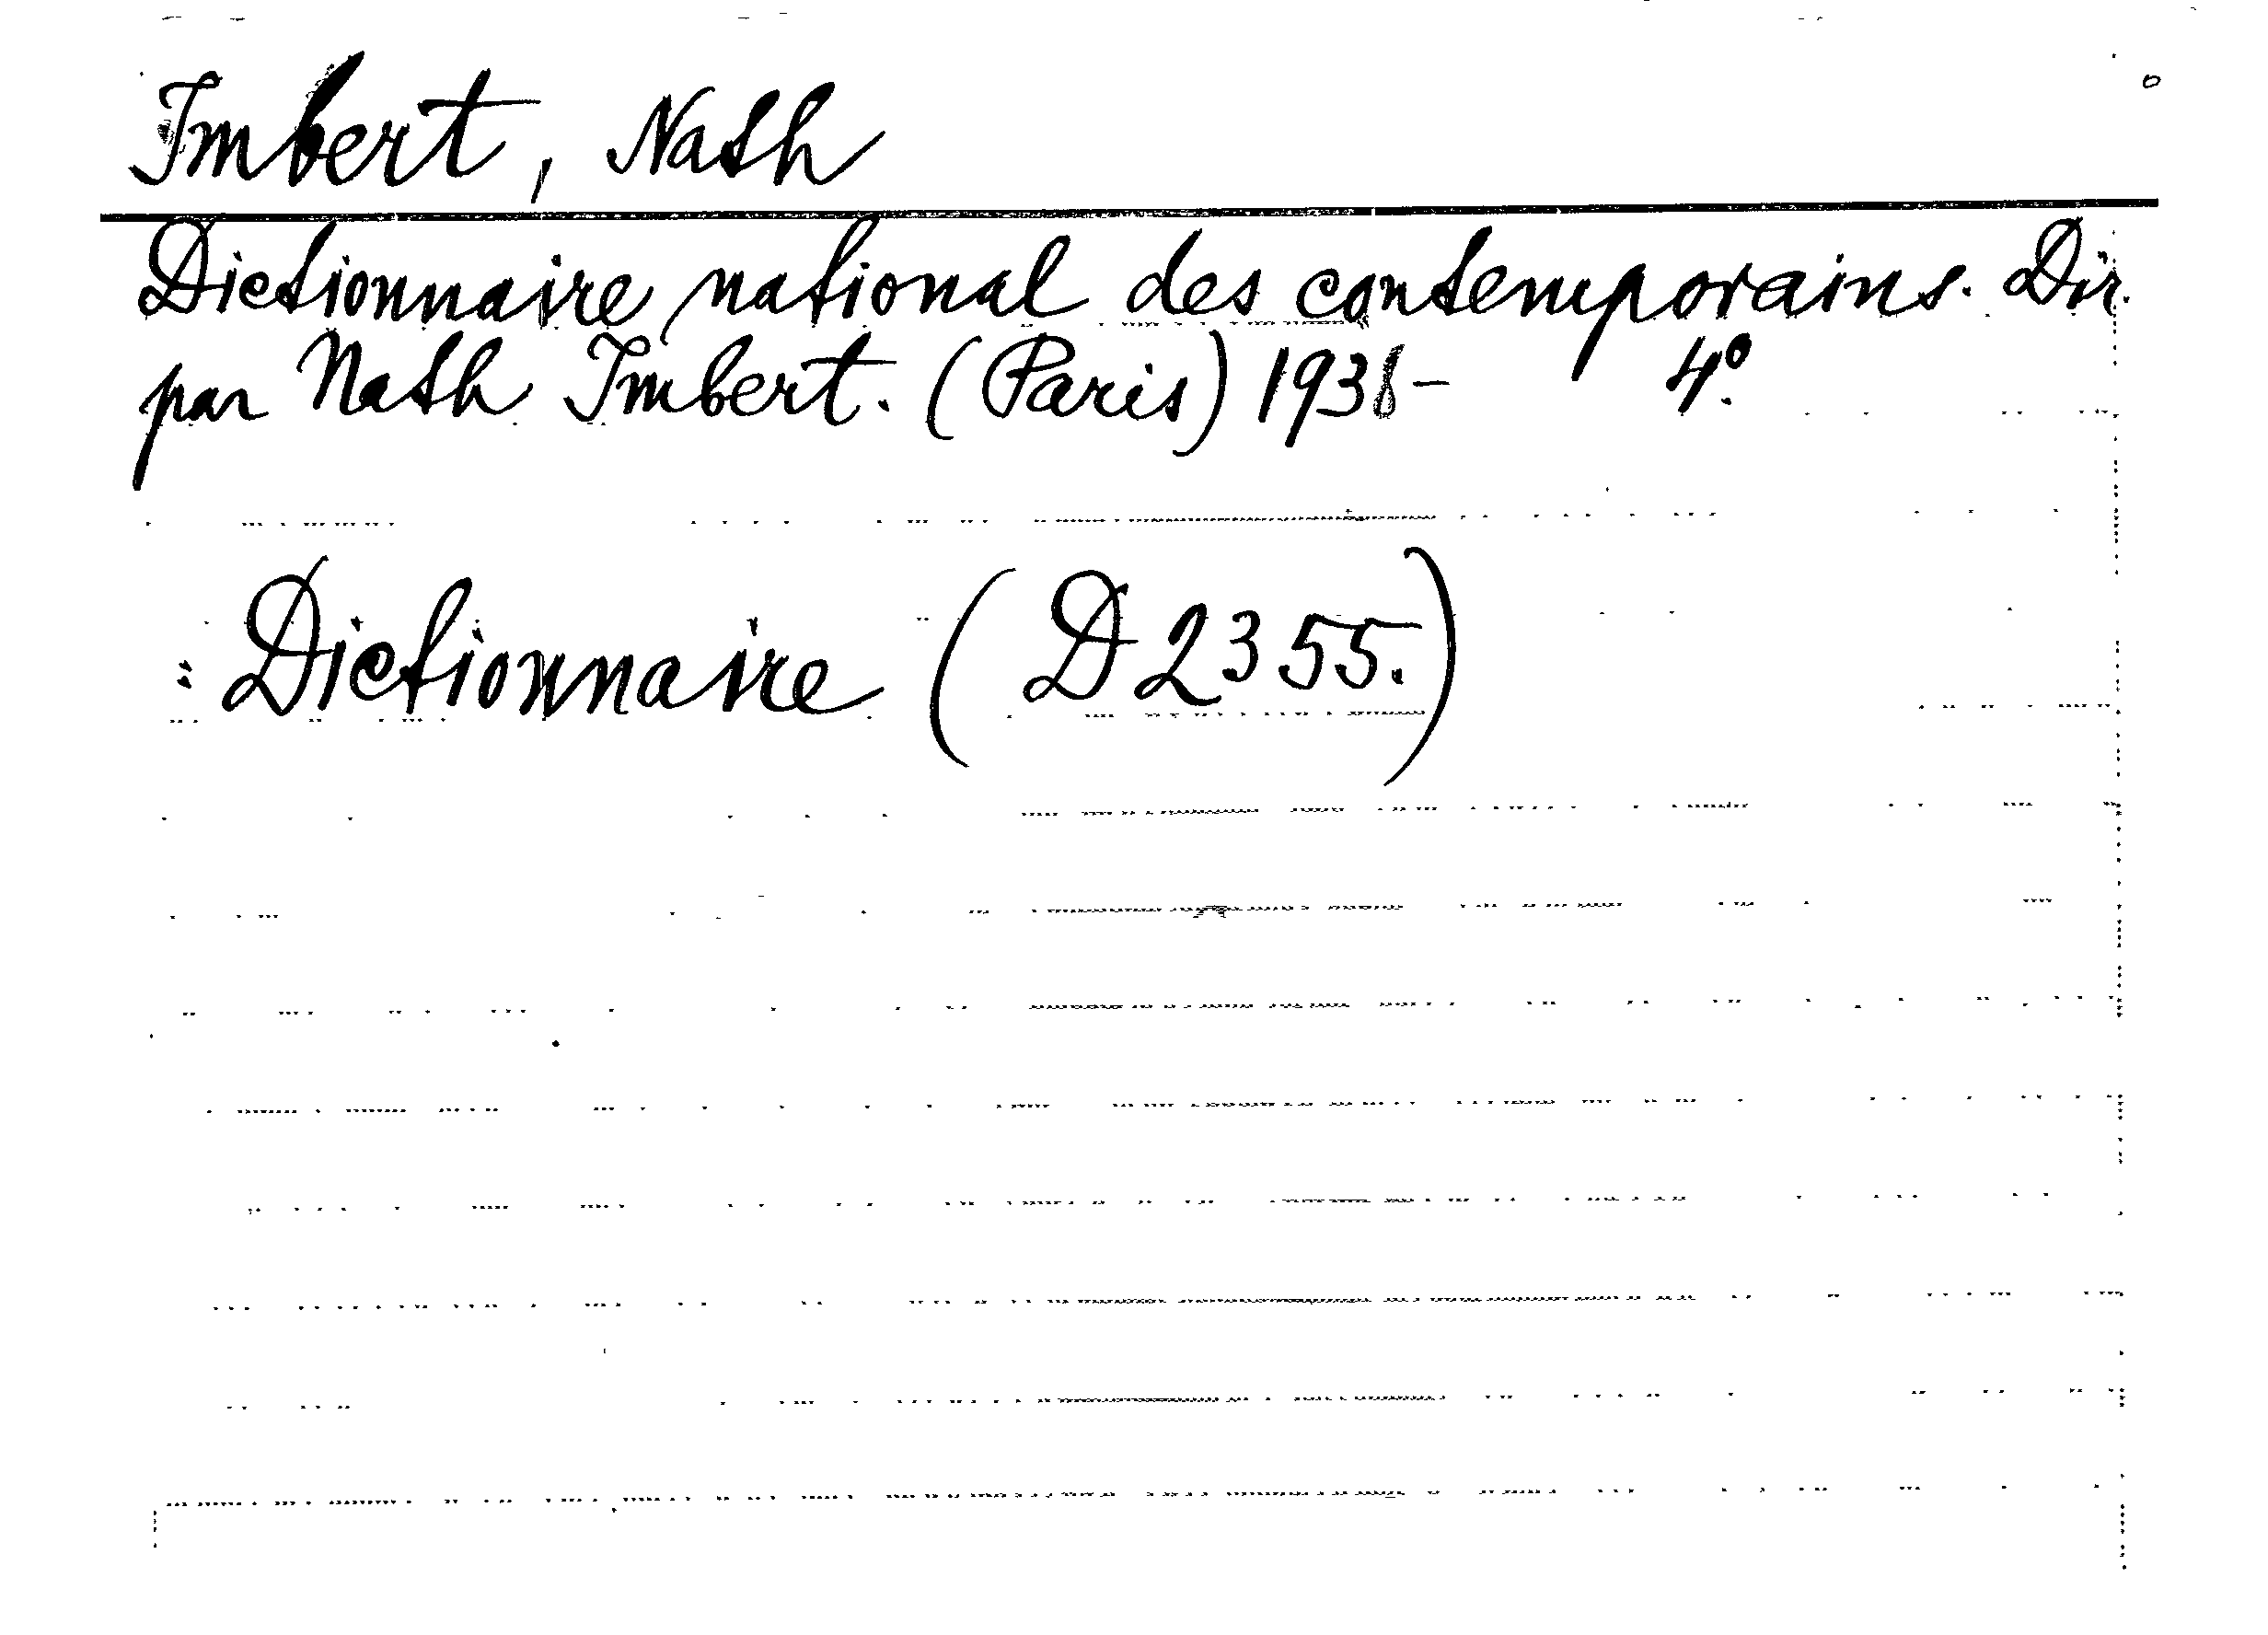 Imbert, Nath
Dictionnaire national des contemporains. Dir.
par Nath Imbert. (Paris) 1938- 4º.
: Dictionnaire (D2355.)